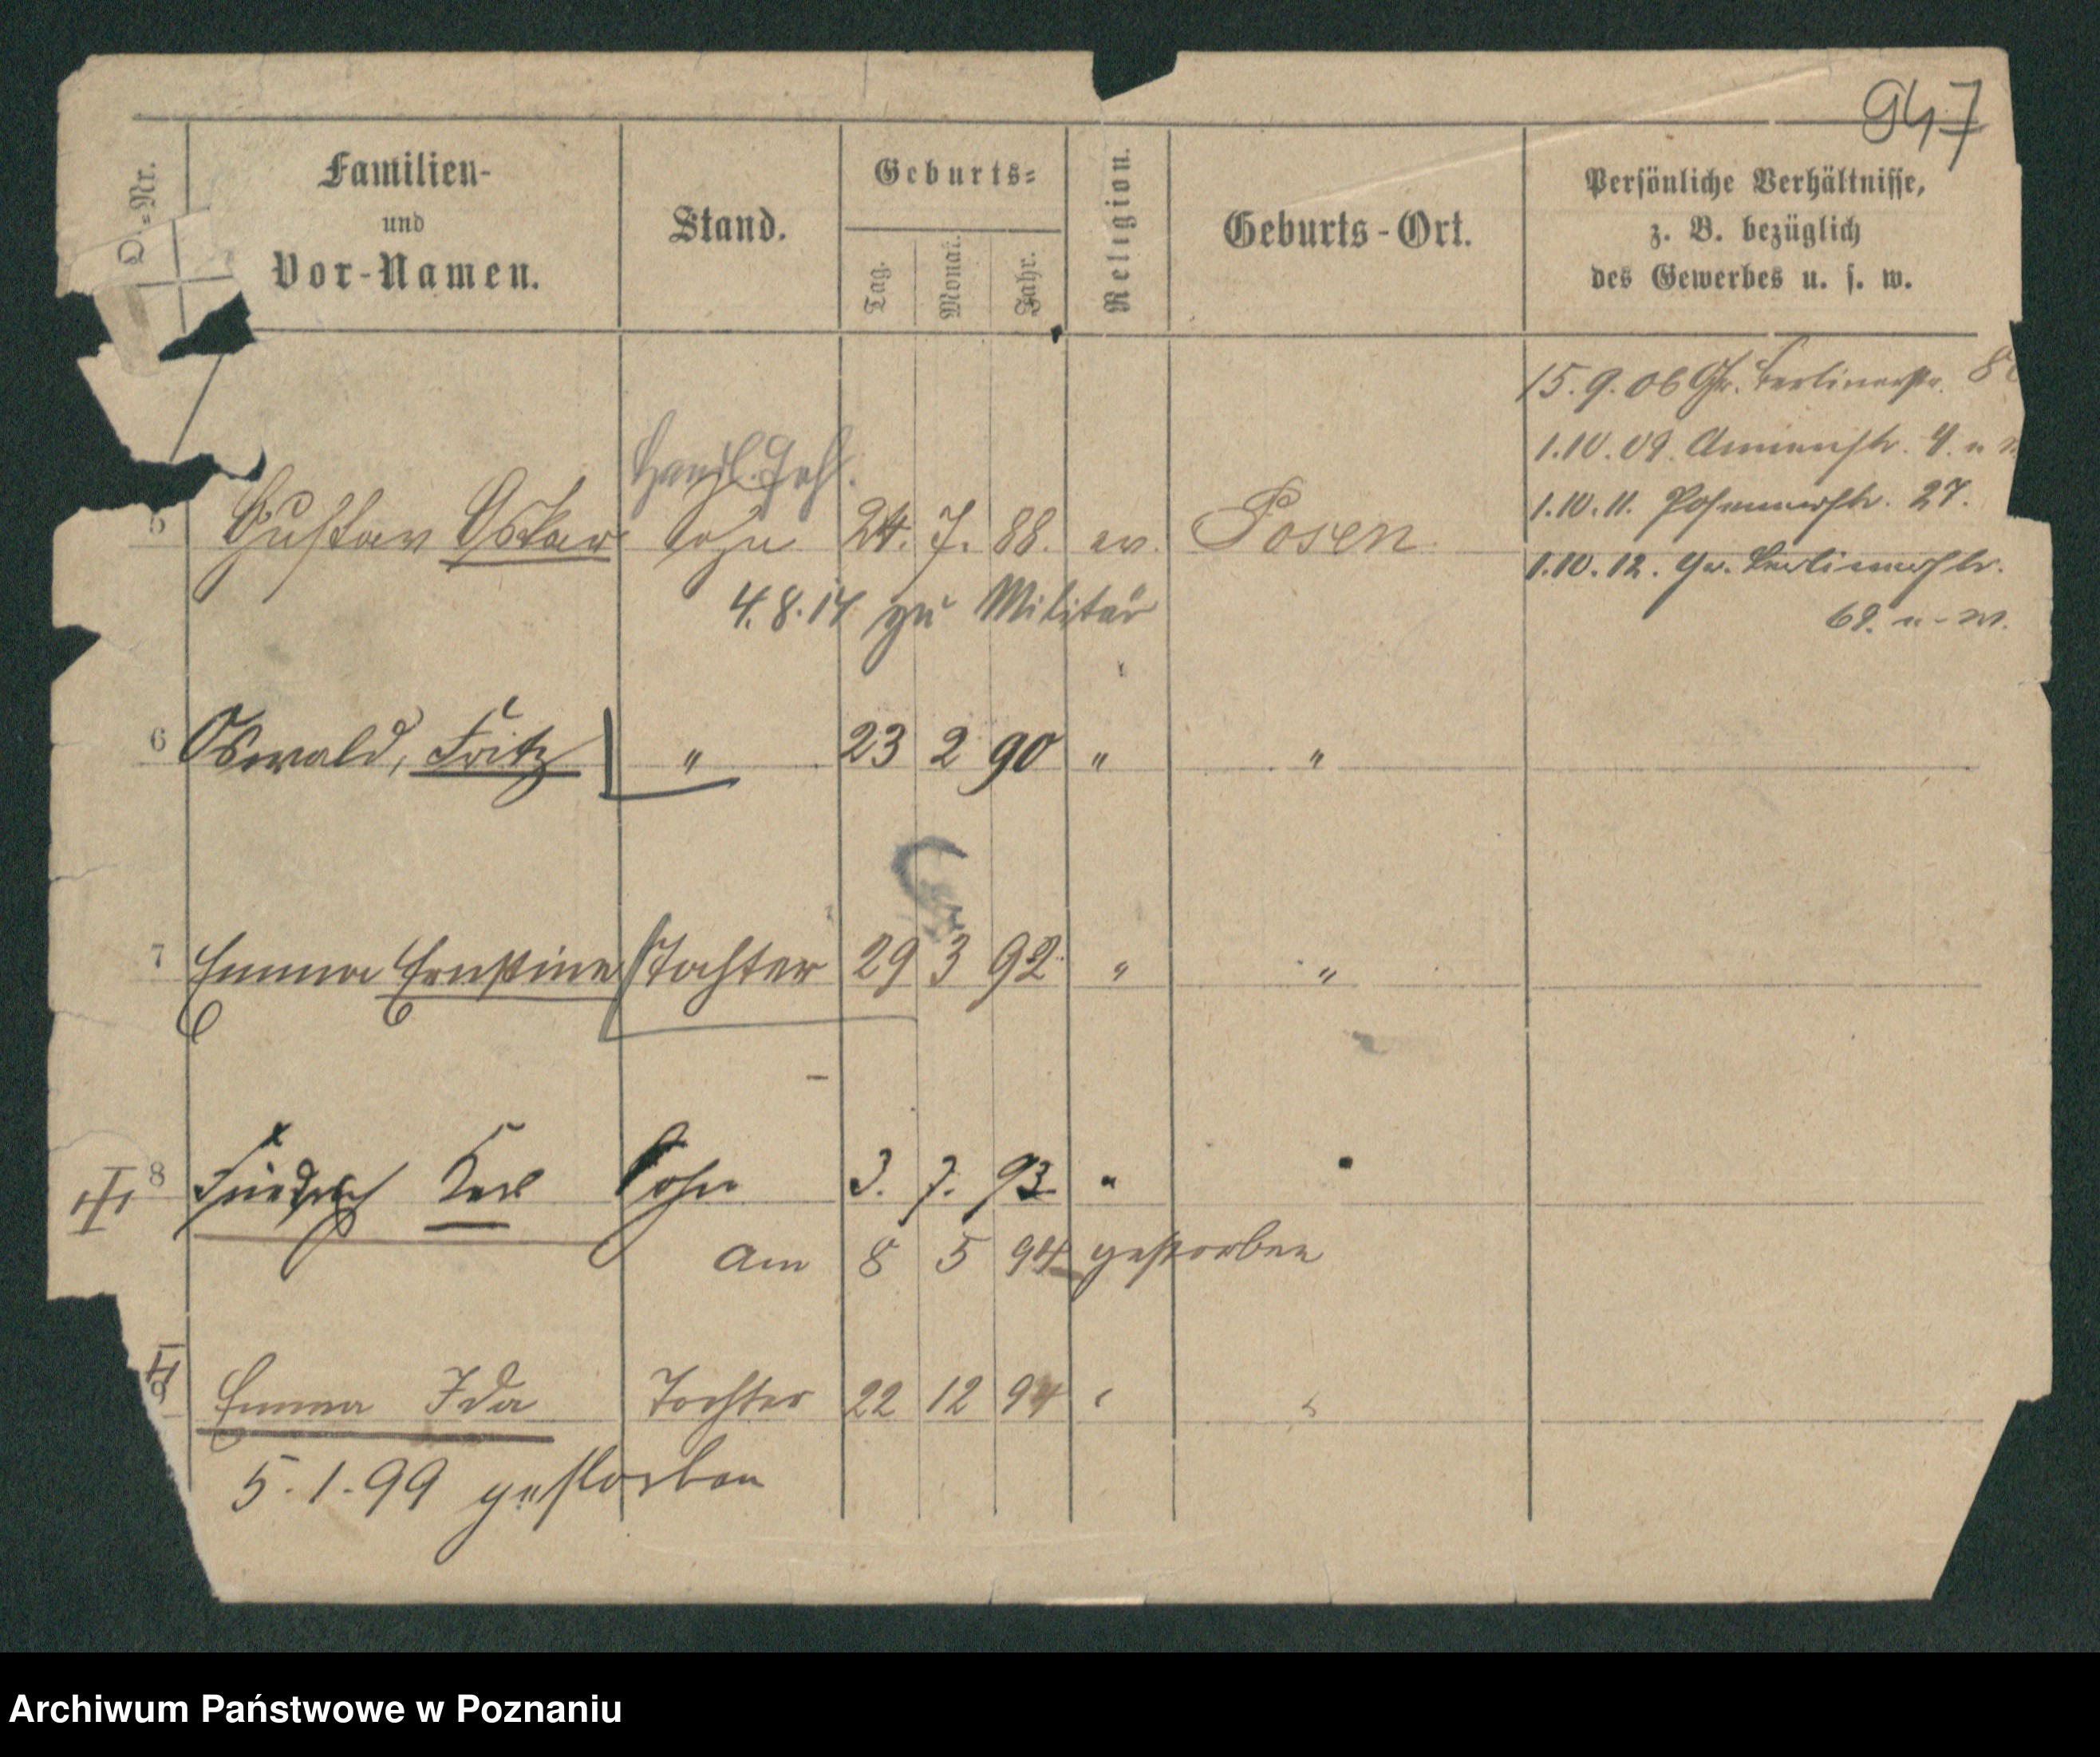 947
O.-Nr.
Familien-
und
Vor-Namen.
Stand.
Geburts-
Tag.
Monat.
Jahr.
Religion.
Geburts-Ort.
Persönliche Verhältnisse,
z. B. bezüglich
des Gewerbes u. s. w.
15.9.06 Gr. Berlinerstr. 8
1.10.09. Annenstr. 4.
1.10.11. Posenerstr. 27.
1.10.12. Gr. Berlinerstr.
69. n. w.
Handl. Geh.
5 Gustav Oskar Sohn 24. 7. 88. ev. Posen
4.8.14 zu Militär
6 Oswald, Fritz " 23 2 90 " "
7 Emma Ernstine Tochter 29 3 92 " "
8 Friedrich Karl Sohn 3. 7. 93 " "
am 8 5 94 gestorben
9 Emma Ida Tochter 22 12 94 " "
5.1.99 gestorben
Archiwum Państwowe w Poznaniu